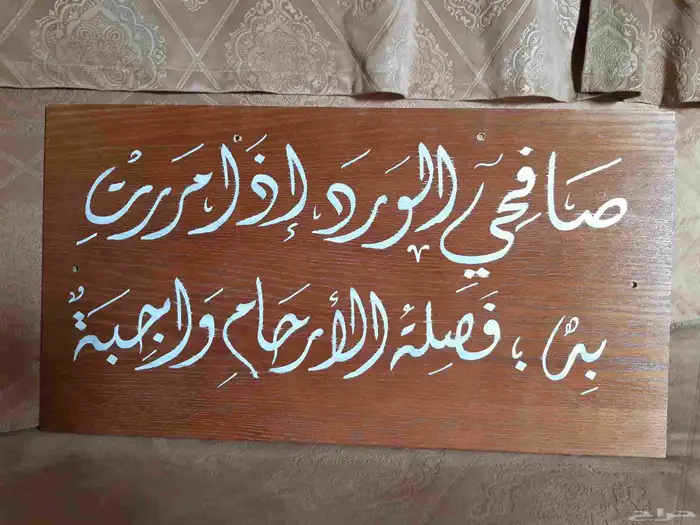 صَافِحِي الوَردَ إذَا مَررتِ
بِهِ ، فَصِلةُ الأرحَامِ وَاجِبَةٌ
حراج